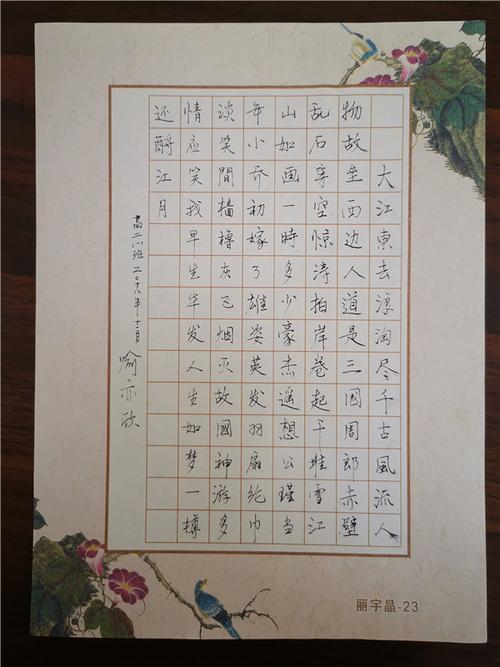 大江東去浪淘尽千古風流人
物故垒西边人道是三國周郎赤壁
乱石穿空惊涛拍岸卷起千堆雪江
山如画一時多少豪杰遥想公瑾当
年小乔初嫁了雄姿英发羽扇纶巾
淡笑間樯橹灰飞烟灭故國神游多
情应笑我早生华发人生如梦一樽
还酹江月
喻亦欣
丽宇晶-23